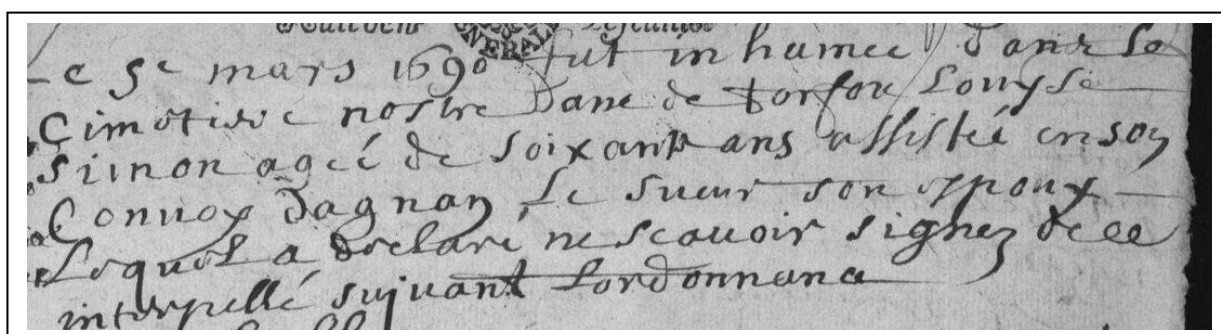 GENERAL
Le 5e mars 1690 fut inhumee dans le
Cimetiere nostre Dame de torfou Louyse
Simon ageé de soixante ans assistée en son
Convoy dagnan Le sueur son espoux
Lequel a declaré ne scavoir signer de ce
interpellé suivant Lordonnance